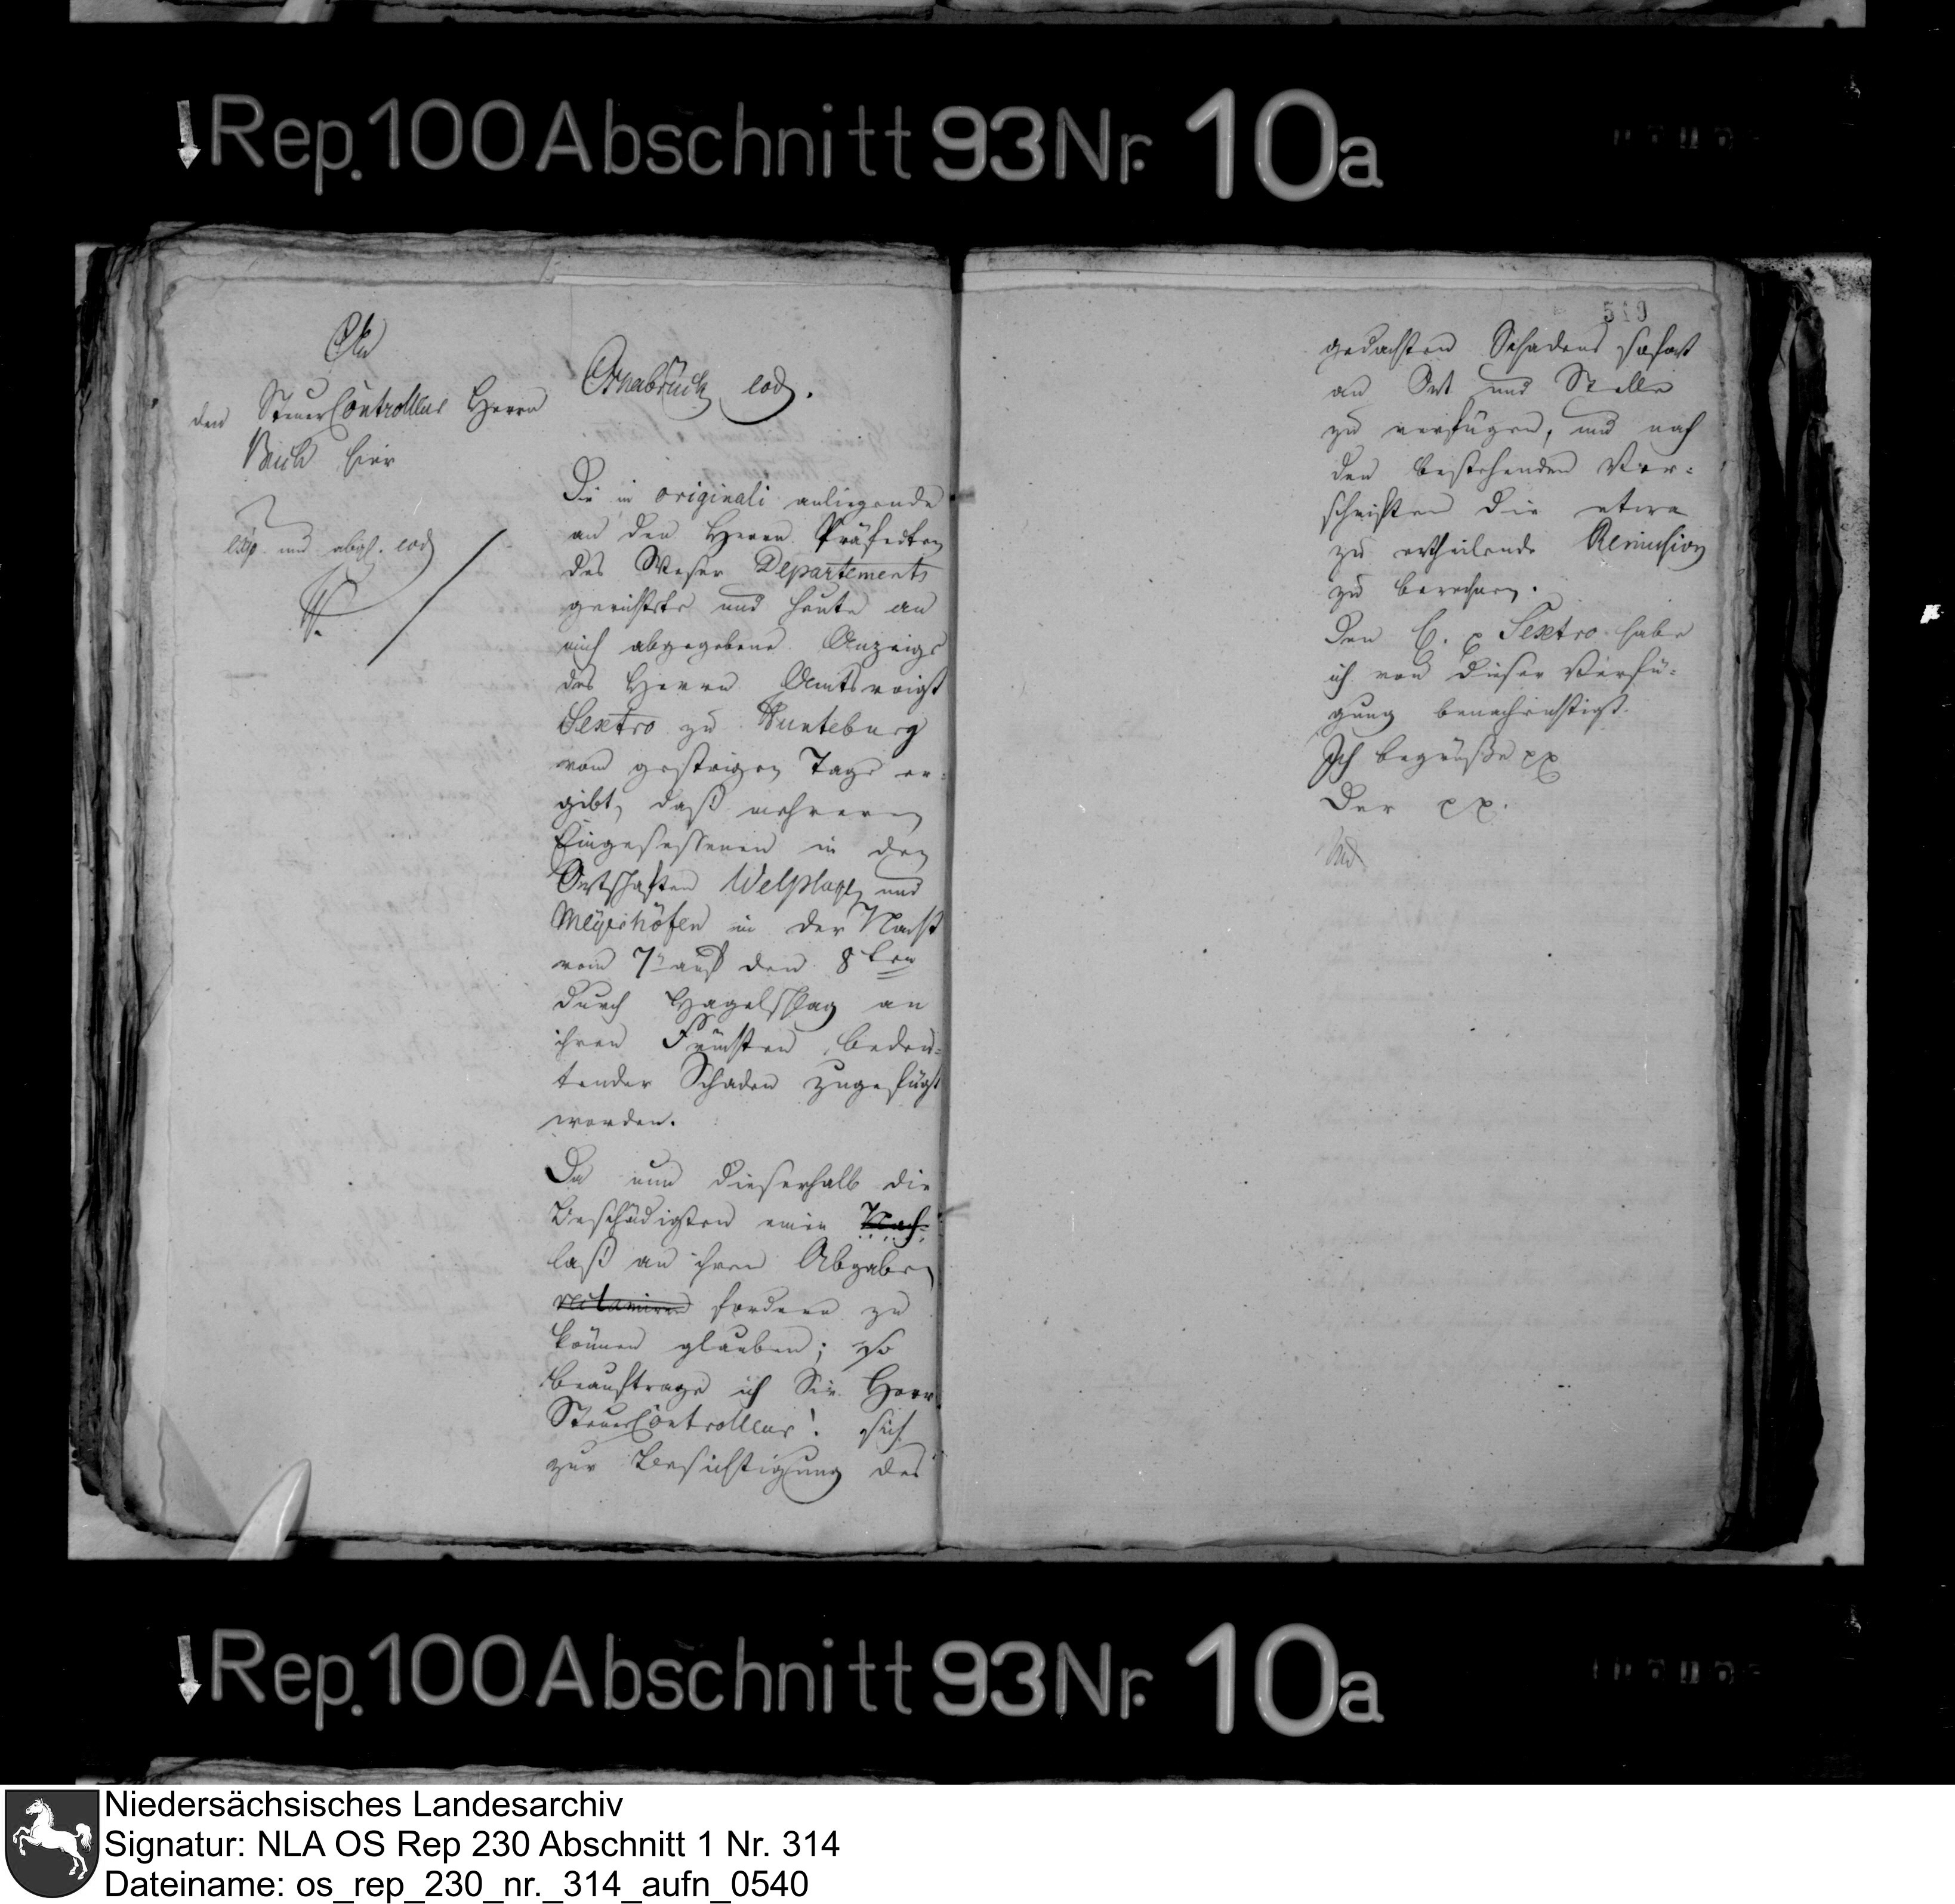 Rep. 100 Abschnitt 93 Nr. 10a
An
den SteuerControlleur Herrn
Buch hier
exp. und abgs. eod
Osnabrück eod.
Die in originali anliegende
an den Herrn Präfecten
des Weser Departements
gerichtete und heute an
mich abgegebene Anzeige
des Herrn Amtsvoigt
Sextro zu Hunteburg
vom gestrigen Tage er-
gibt, daß mehreren
Eingesessenen in den
Ortschaften Welplage und
Meyerhöfen in der Nacht
vom 7n auf den 8ten
durch Hagelschlag an
ihren Früchten bedeu-
tender Schaden zugefügt
worden.
Da nun dieserhalb die
Beschädigten einen Nach-
laß an ihren Abgaben
reclamiren fordern zu
können glauben; so
beauftrage ich Sie Herr
SteuerControlleur! sich
zur Besichtigung des
519
gedachten Schadens sofort
an Ort und Stelle
zu verfügen, und nach
den bestehenden Vor-
schriften die etwa
zu ertheilende Remission
zu berechnen.
Den H. p Sextro habe
ich von dieser Verfü-
gung benachrichtigt.
Ich begrüße pp
Der pp.
Rep. 100 Abschnitt 93 Nr. 10a
Niedersächsisches Landesarchiv
Signatur: NLA OS Rep 230 Abschnitt 1 Nr. 314
Dateiname: os_rep_230_nr._314_aufn_0540